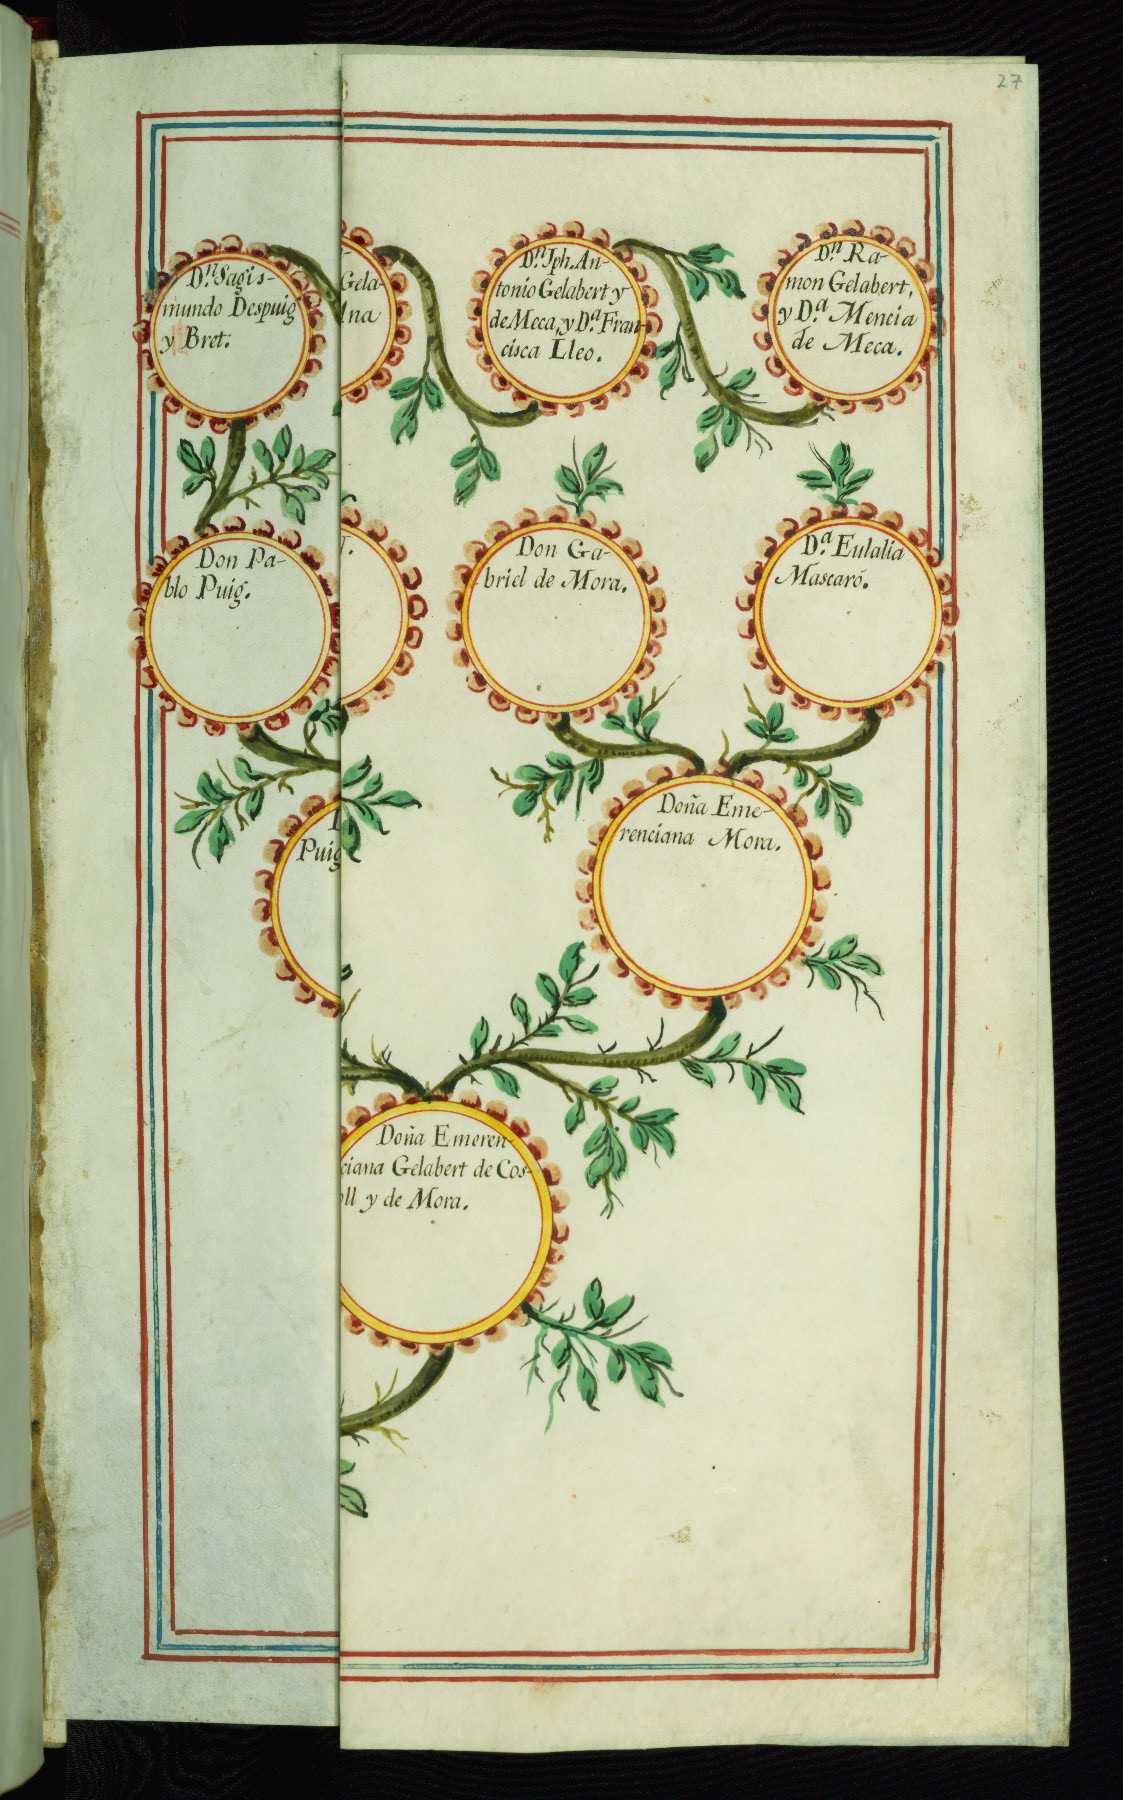 27
Dⁿ. Sagis-
mundo Despuig
y Bret.
Gela-
Ana
Dⁿ. Jph. An-
tonio Gelabert y
de Meca, y Dª. Fran-
cisca Lleo.
Dⁿ. Ra-
mon Gelabert,
y Dª. Mencia
de Meca.
Don Pa-
blo Puig.
Don Ga-
briel de Mora.
Dª. Eulalia
Mascaró.
Puig
Doña Eme-
renciana Mora.
Doña Emeren-
ciana Gelabert de Cos-
oll y de Mora.